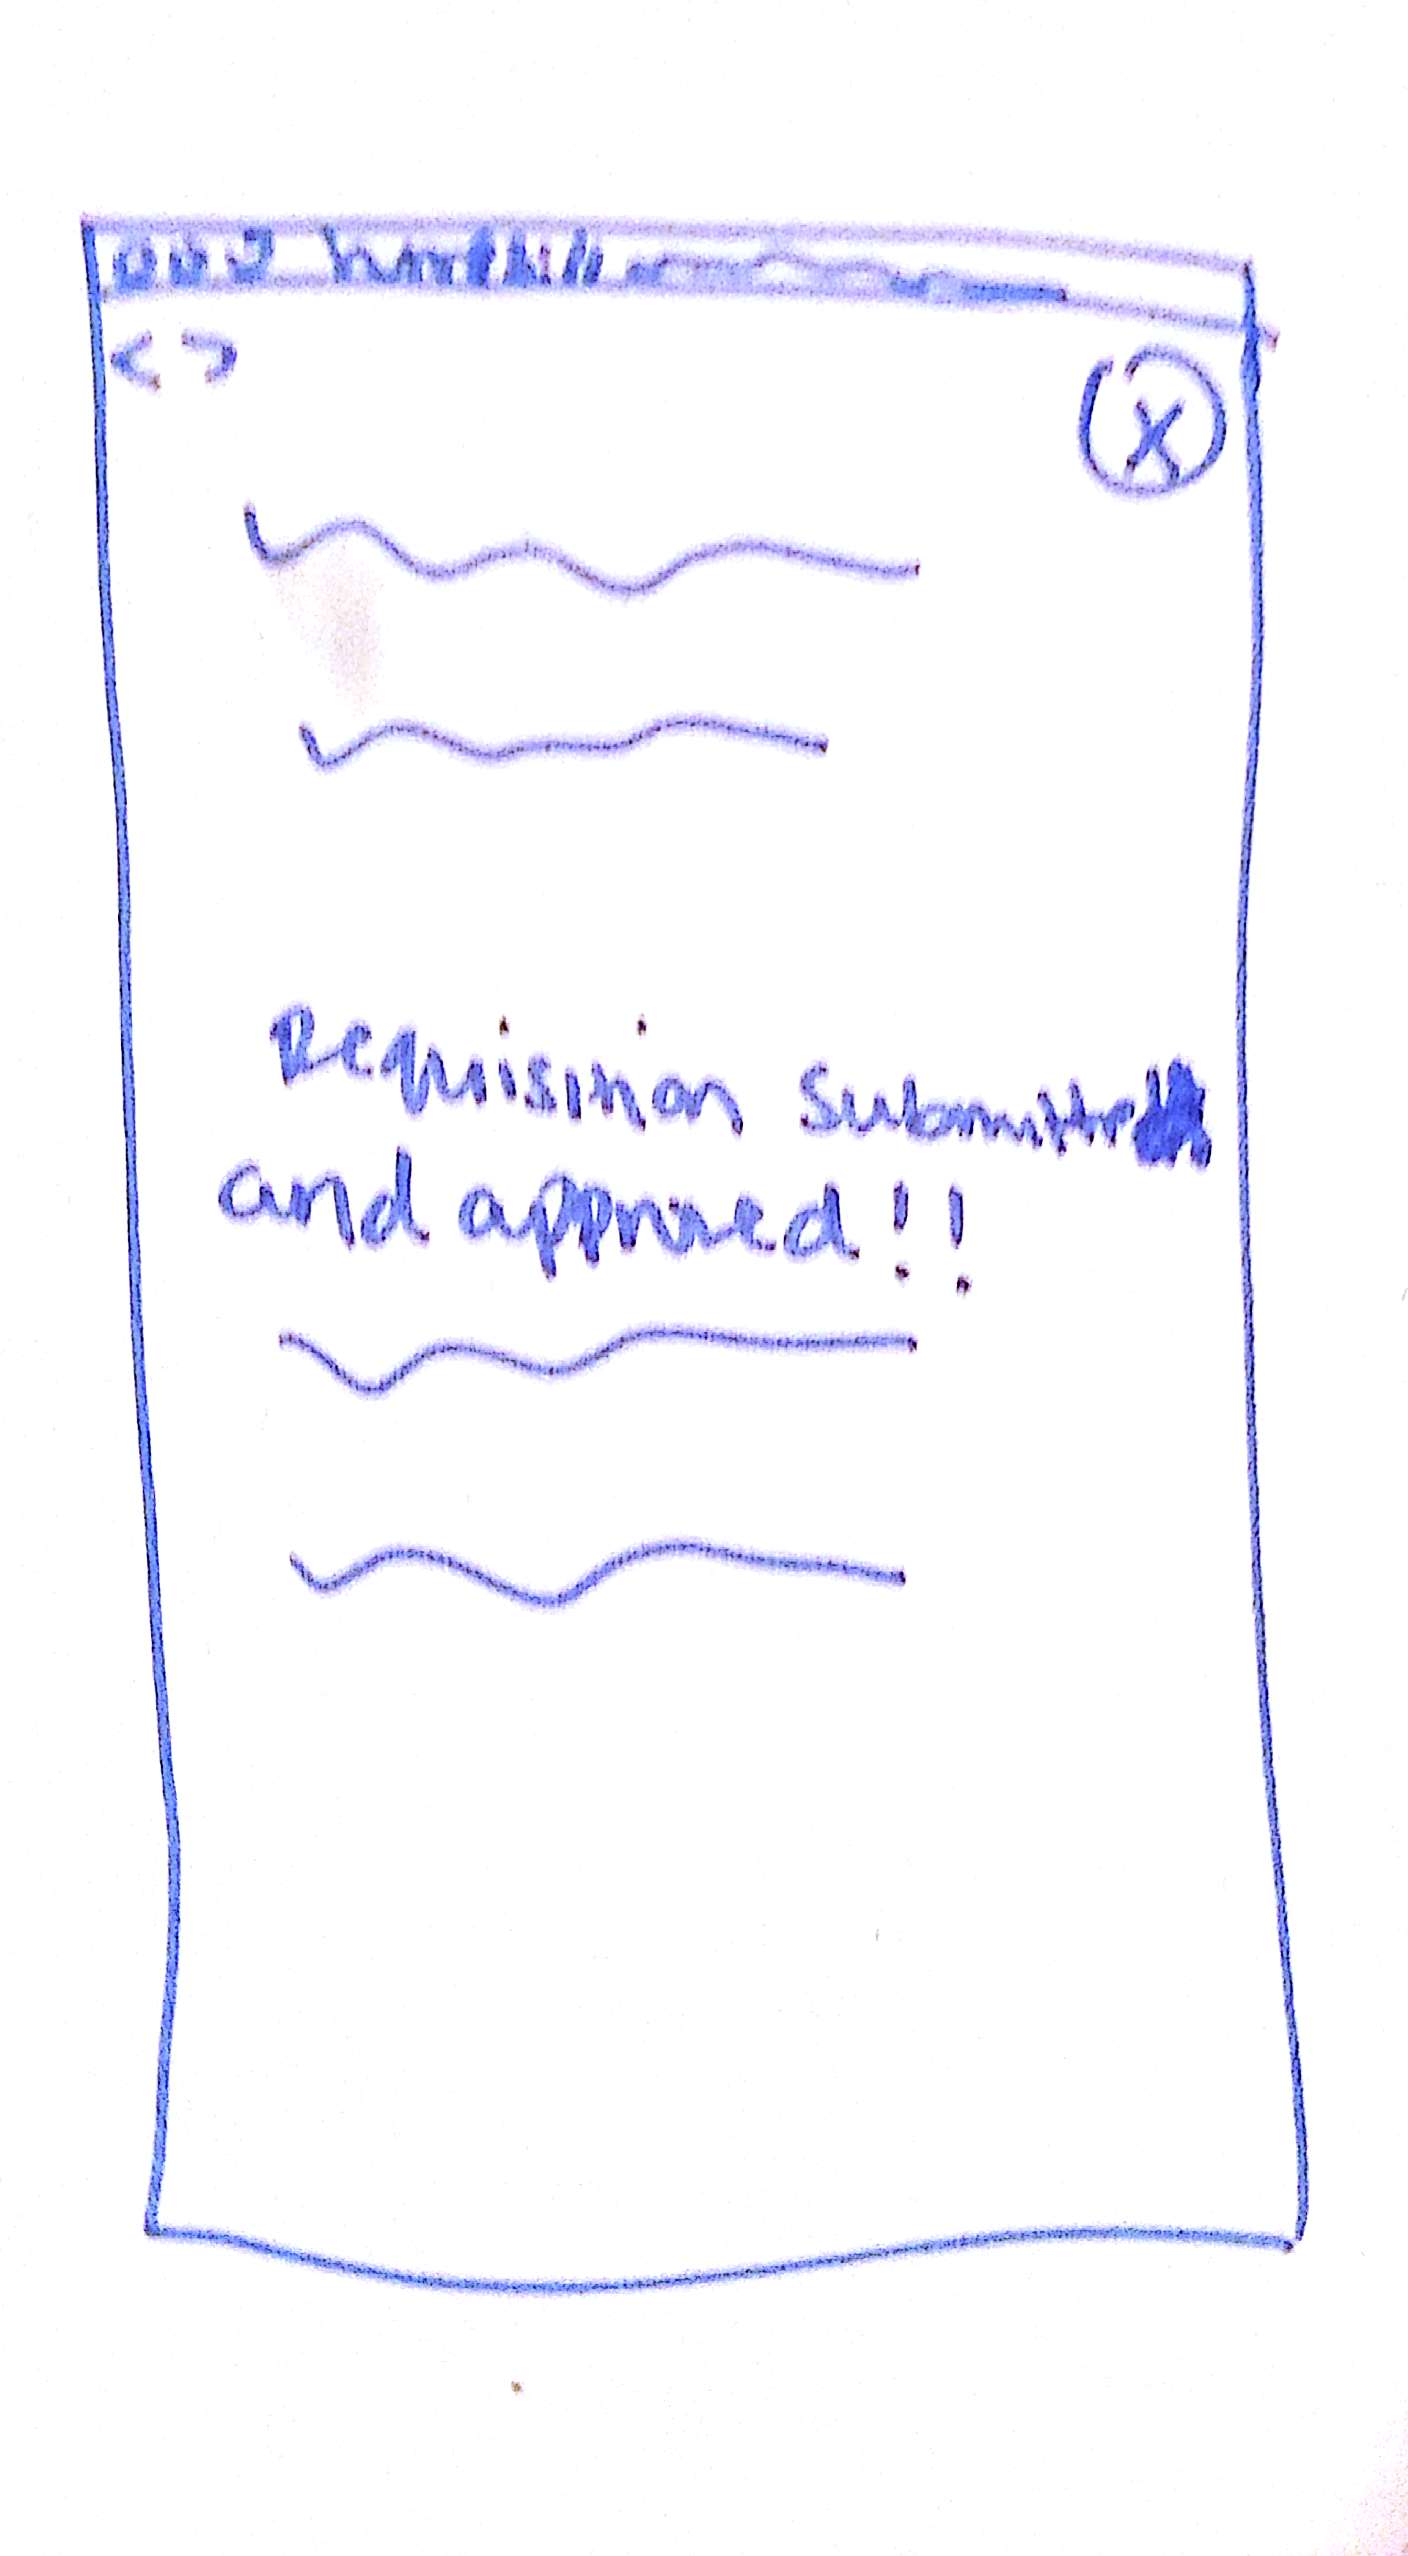 < >
X
Requisition submitted
and approved!!